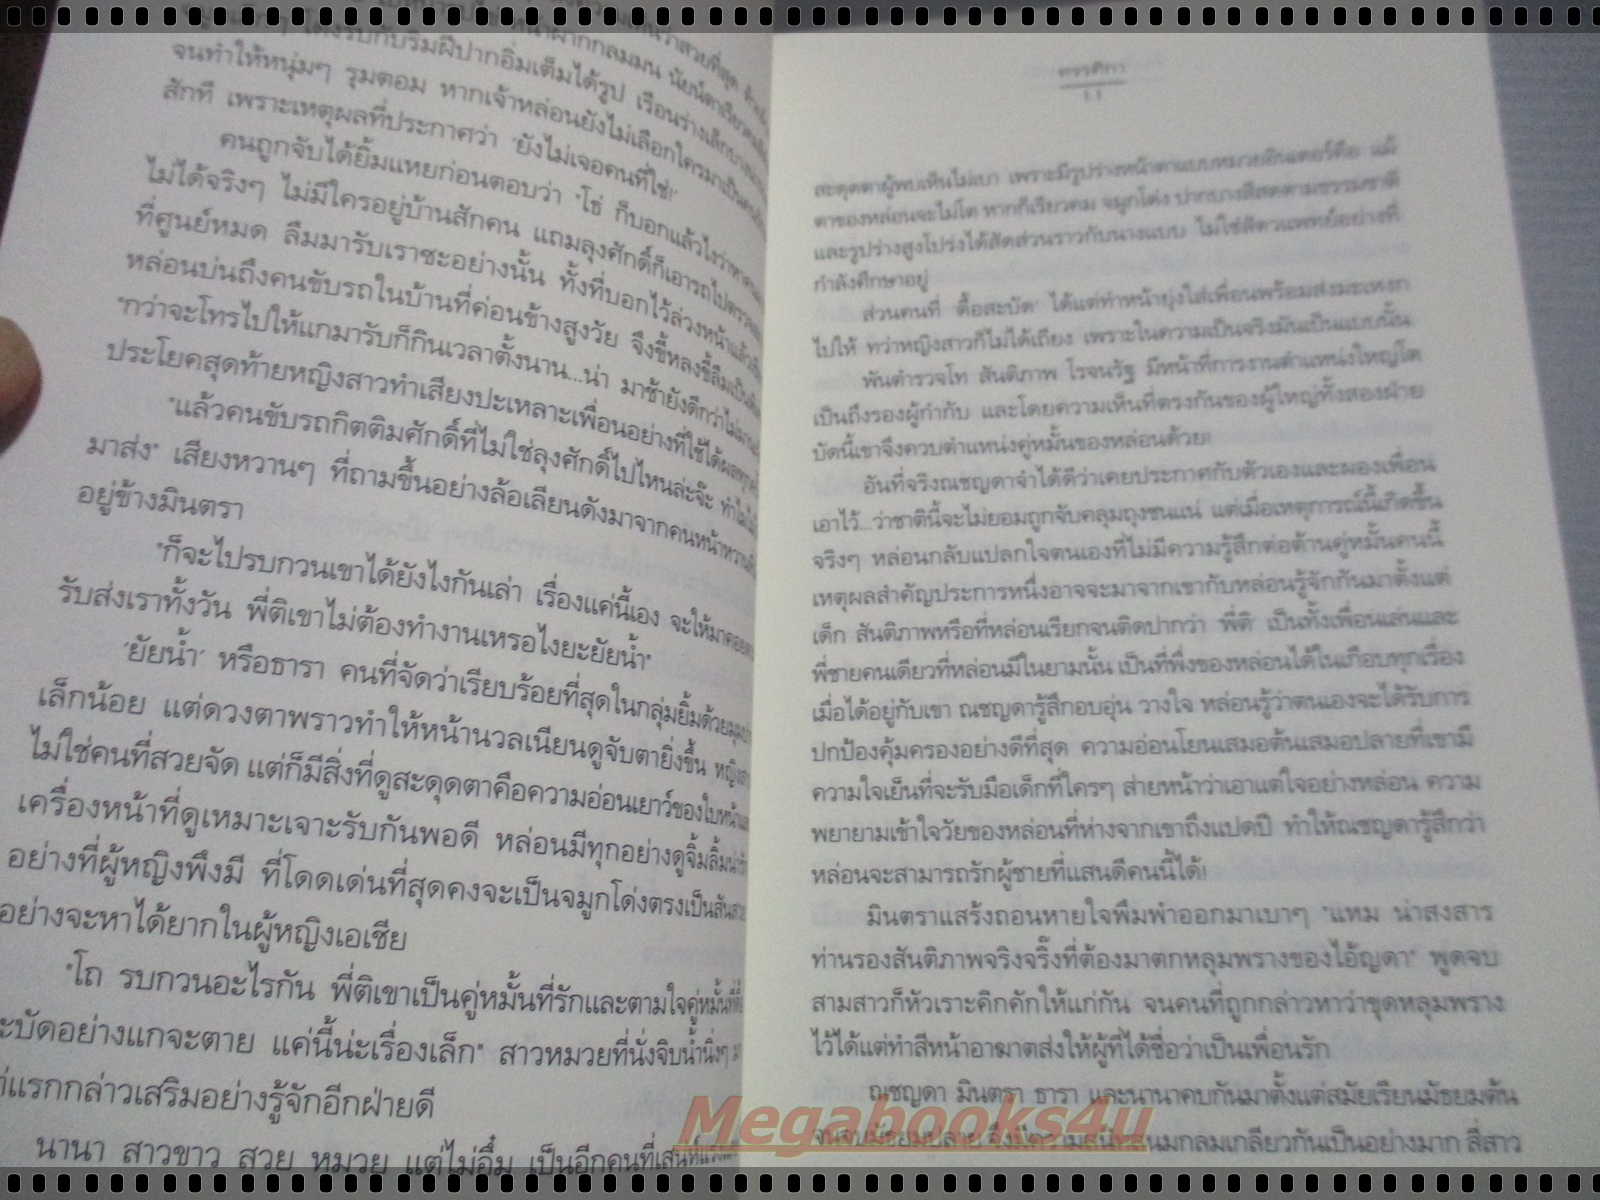 จนทำให้หนุ่มๆ รุมตอม หากเจ้าหล่อนยังไม่เลือกใครมาเป็น
สักที เพราะเหตุผลที่ประกาศว่า 'ยังไม่เจอคนที่ใช่!'
คนถูกจับได้ยิ้มแหยก่อนตอบว่า "โธ่ ก็บอกแล้วไงว่าหาคน
ไม่ได้จริงๆ ไม่มีใครอยู่บ้านสักคน แถมลุงศักดิ์ก็เอารถไปตรวจ
ที่ศูนย์หมด ลืมมารับเราซะอย่างนั้น ทั้งที่บอกไว้ล่วงหน้าแล้ว
หล่อนบ่นถึงคนขับรถในบ้านที่ค่อนข้างสูงวัย จึงขี้หลงขี้ลืมเป็น
"กว่าจะโทรไปให้แกมารับก็กินเวลาตั้งนาน...น่า มาช้ายังดีกว่าไม่มา
ประโยคสุดท้ายหญิงสาวทำเสียงปะเหลาะเพื่อนอย่างที่ใช้ได้ผล
"แล้วคนขับรถกิตติมศักดิ์ที่ไม่ใช่ลุงศักดิ์ไปไหนล่ะจ๊ะ ทำไมไม่
มาส่ง" เสียงหวานๆ ที่ถามขึ้นอย่างล้อเลียนดังมาจากคนหน้าหวาน
อยู่ข้างมินตรา
"ก็จะไปรบกวนเขาได้ยังไงกันเล่า เรื่องแค่นี้เอง จะให้มาคอย
รับส่งเราทั้งวัน พี่ติเขาไม่ต้องทำงานเหรอไงยะยัยน้ำ"
'ยัยน้ำ' หรือธารา คนที่จัดว่าเรียบร้อยที่สุดในกลุ่มยิ้มด้วยมุม
เล็กน้อย แต่ดวงตาพราวทำให้หน้านวลเนียนดูจับตายิ่งขึ้น
ไม่ใช่คนที่สวยจัด แต่ก็มีสิ่งที่ดูสะดุดตาคือความอ่อนเยาว์ของใบหน้า
เครื่องหน้าที่ดูเหมาะเจาะรับกันพอดี หล่อนมีทุกอย่างดูจิ้มลิ้ม
อย่างที่ผู้หญิงพึงมี ที่โดดเด่นที่สุดคงจะเป็นจมูกโด่งตรงเป็นสัน
อย่างจะหาได้ยากในผู้หญิงเอเชีย
"โถ รบกวนอะไรกัน พี่ติเขาเป็นคู่หมั้นที่รักและตามใจคู่หมั้น
อย่างแกจะตาย แค่นี้น่ะเรื่องเล็ก" สาวหมวยที่นั่งจิบน้ำนิ่งๆ
แรกกล่าวเสริมอย่างรู้จักอีกฝ่ายดี
นานา สาวขาว สวย หมวย แต่ไม่อึ๋ม เป็นอีกคนที่
11
สะดุดตาผู้พบเห็นไม่เบา เพราะมีรูปร่างหน้าตาแบบหมวยอินเตอร์คือ แม้
ตาของหล่อนจะไม่โต หากก็เรียวคม จมูกโด่ง ปากบางสีสดตามธรรมชาติ
และรูปร่างสูงโปร่งได้สัดส่วนราวกับนางแบบ ไม่ใช่สัตวแพทย์อย่างที่
กำลังศึกษาอยู่
ส่วนคนที่ 'ดื้อสะบัด' ได้แต่ทำหน้ายุ่งใส่เพื่อนพร้อมส่งมะเหงก
ไปให้ ทว่าหญิงสาวก็ไม่ได้เถียง เพราะในความเป็นจริงมันเป็นแบบนั้น
พันตำรวจโท สันติภาพ โรจนรัฐ มีหน้าที่การงานตำแหน่งใหญ่โต
เป็นถึงรองผู้กำกับ และโดยความเห็นที่ตรงกันของผู้ใหญ่ทั้งสองฝ่าย
บัดนี้เขาจึงควบตำแหน่งคู่หมั้นของหล่อนด้วย!
อันที่จริงณชญดาจำได้ดีว่าเคยประกาศกับตัวเองและผองเพื่อน
เอาไว้...ว่าชาตินี้จะไม่ยอมถูกจับคลุมถุงชนแน่ แต่เมื่อเหตุการณ์นี้เกิดขึ้น
จริงๆ หล่อนกลับแปลกใจตนเองที่ไม่มีความรู้สึกต่อต้านคู่หมั้นคนนี้
เหตุผลสำคัญประการหนึ่งอาจจะมาจากเขากับหล่อนรู้จักกันมาตั้งแต่
เด็ก สันติภาพหรือที่หล่อนเรียกจนติดปากว่า 'พี่ติ' เป็นทั้งเพื่อนเล่นและ
พี่ชายคนเดียวที่หล่อนมีในยามนั้น เป็นที่พึ่งของหล่อนได้ในเกือบทุกเรื่อง
เมื่อได้อยู่กับเขา ณชญดารู้สึกอบอุ่น วางใจ หล่อนรู้ว่าตนเองจะได้รับการ
ปกป้องคุ้มครองอย่างดีที่สุด ความอ่อนโยนเสมอต้นเสมอปลายที่เขามี
ความใจเย็นที่จะรับมือเด็กที่ใครๆ ส่ายหน้าว่าเอาแต่ใจอย่างหล่อน ความ
พยายามเข้าใจวัยของหล่อนที่ห่างจากเขาถึงแปดปี ทำให้ณชญดารู้สึกว่า
หล่อนจะสามารถรักผู้ชายที่แสนดีคนนี้ได้!
มินตราแสร้งถอนหายใจพึมพำออกมาเบาๆ "แหม น่าสงสาร
ท่านรองสันติภาพจริงจริ๊งที่ต้องมาตกหลุมพรางของไอ้ญดา" พูดจบ
สามสาวก็หัวเราะคิกคักให้แก่กัน จนคนที่ถูกกล่าวหาว่าขุดหลุมพราง
ไว้ได้แต่ทำสีหน้าอาฆาตส่งให้ผู้ที่ได้ชื่อว่าเป็นเพื่อนรัก
ณชญดา มินตรา ธารา และนานาคบกันมาตั้งแต่สมัยเรียนมัธยมต้น
จนจบมัธยมปลาย จึงมีความสนิทสนมกลมเกลียวกันเป็นอย่างมาก สี่สาว
Megabooks4u